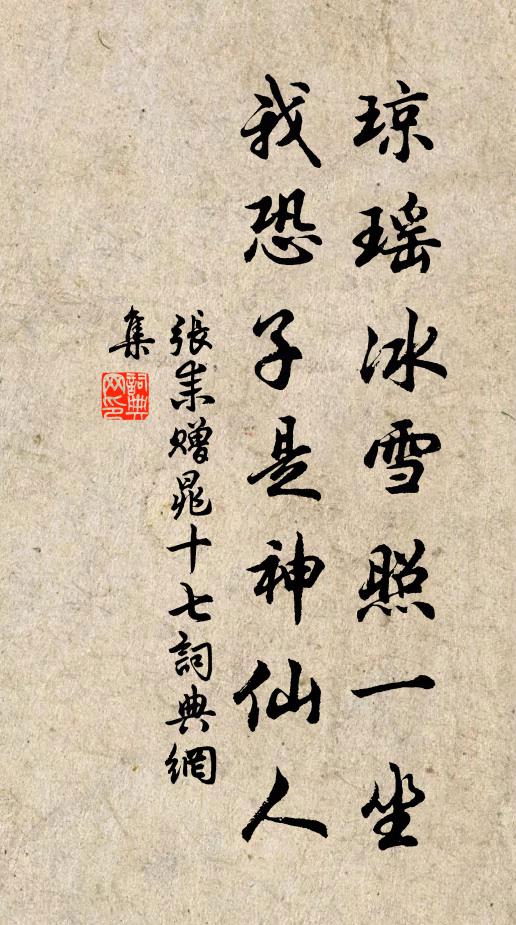 琼瑶冰雪照一坐
我恐子是神仙人
張耒赠晁十七詞典網
集
詞典网印